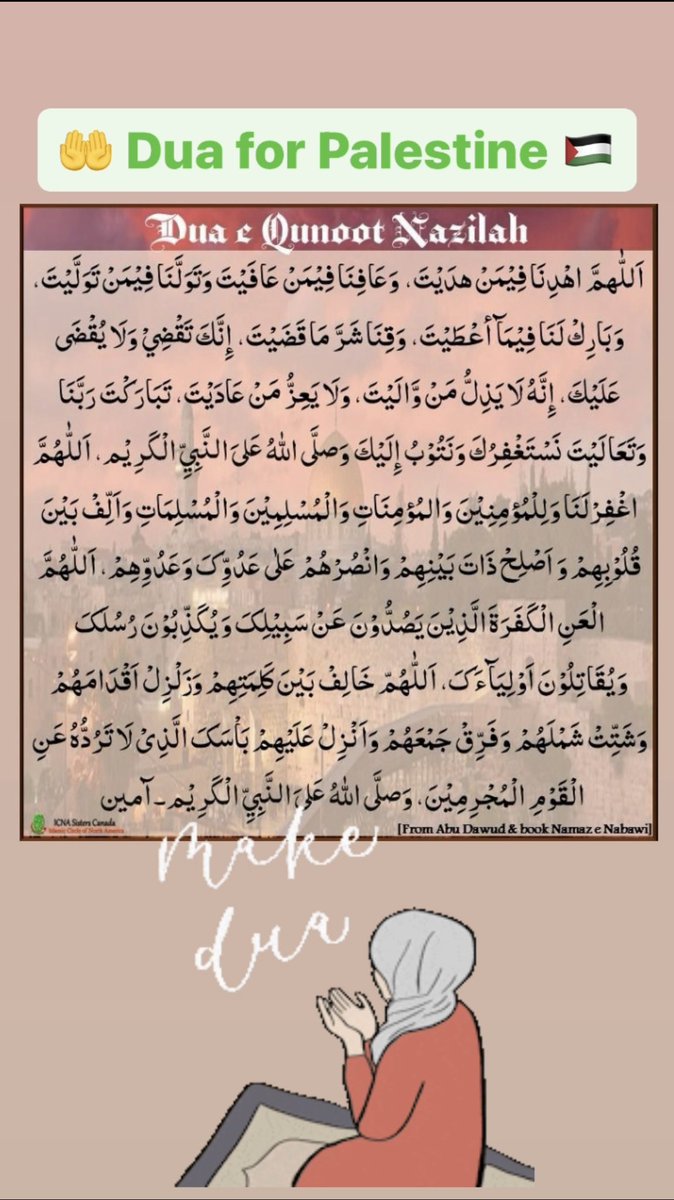 🤲 Dua for Palestine 🇵🇸
Dua e Qunoot Nazilah
اَللّٰهمَّ اهْدِنَا فِيْمَنْ هدَيْتَ، وَعَافِنَا فِيْمَنْ عَافَيْتَ وَتَوَلَّنَا فِيْمَنْ تَوَلَّيْتَ،
وَبَارِكْ لَنَا فِيْمَآ أعْطَيْتَ، وَقِنَا شَرَّ مَا قَضَيْتَ، إِنَّكَ تَقْضِيْ وَلَا يُقْضَى
عَلَيْكَ، إِنَّهُ لَا يَذِلُّ مَنْ وَّالَيْتَ، وَلَا يَعِزُّ مَنْ عَادَيْتَ، تَبَارَكْتَ رَبَّنَا
وَتَعَالَيْتَ نَسْتَغْفِرُكَ وَنَتُوْبُ إِلَيْكَ وَصَلَّى اللهُ عَلىَ النَّبِيِّ الْكَرِيْم، اَللّٰهُمَّ
اغْفِرْ لَنَا وَلِلْمُؤمِنِيْنَ وَالمُؤمِنَاتِ وَالْمُسْلِمِيْنَ وَالْمُسْلِمَاتِ وَاَلِّفْ بَيْنَ
قُلُوْبِهِمْ وَ اَصْلِحْ ذَاتَ بَيْنِهِمْ وَانْصُرْهُمْ عَلىٰ عَدُوِّکَ وَعَدُوِّهِمْ، اَللّٰهُمَّ
الْعَنِ الْكَفَرَةَ الَّذِيْنَ يَصُدُّوْنَ عَنْ سَبِيْلِکَ وَيُكَذِّبُوْنَ رُسُلَکَ
وَيُقَاتِلُوْنَ اَوْلِيَآءَکَ، اَللّٰهُمّ خَالِفْ بَيْنَ كَلِمَتِهِمْ وَزَلْزِلْ اَقْدَامَهُمْ
وَشَتِّتْ شَمْلَهُمْ وَفَرِّقْ جَمْعَهُمْ وَاَنْزِلْ عَلَيْهِمْ بَأْسَکَ الَّذِیْ لَا تَرُدُّهُ عَنِ
الْقَوْمِ الْمُجْرِمِيْنَ، وَصَلَّى اللهُ عَلىَ النَّبِيِّ الْكَرِيْم۔ آمين
ICNA Sisters Canada
Islamic Circle of North America
[From Abu Dawud & book Namaz e Nabawi]
make
dua